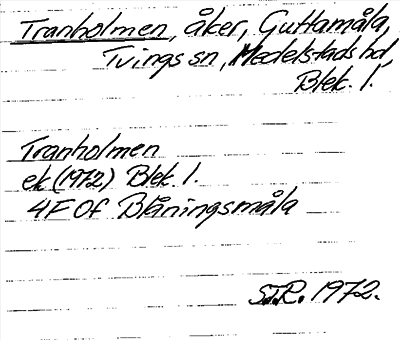 Tranholmen, åker, Guttamåla,
Tvings sn, Medelstads hd,
Blek. l.
Tranholmen
ek (1972) Blek. l.
4F Of Blåningsmåla
S.T.R. 1972.